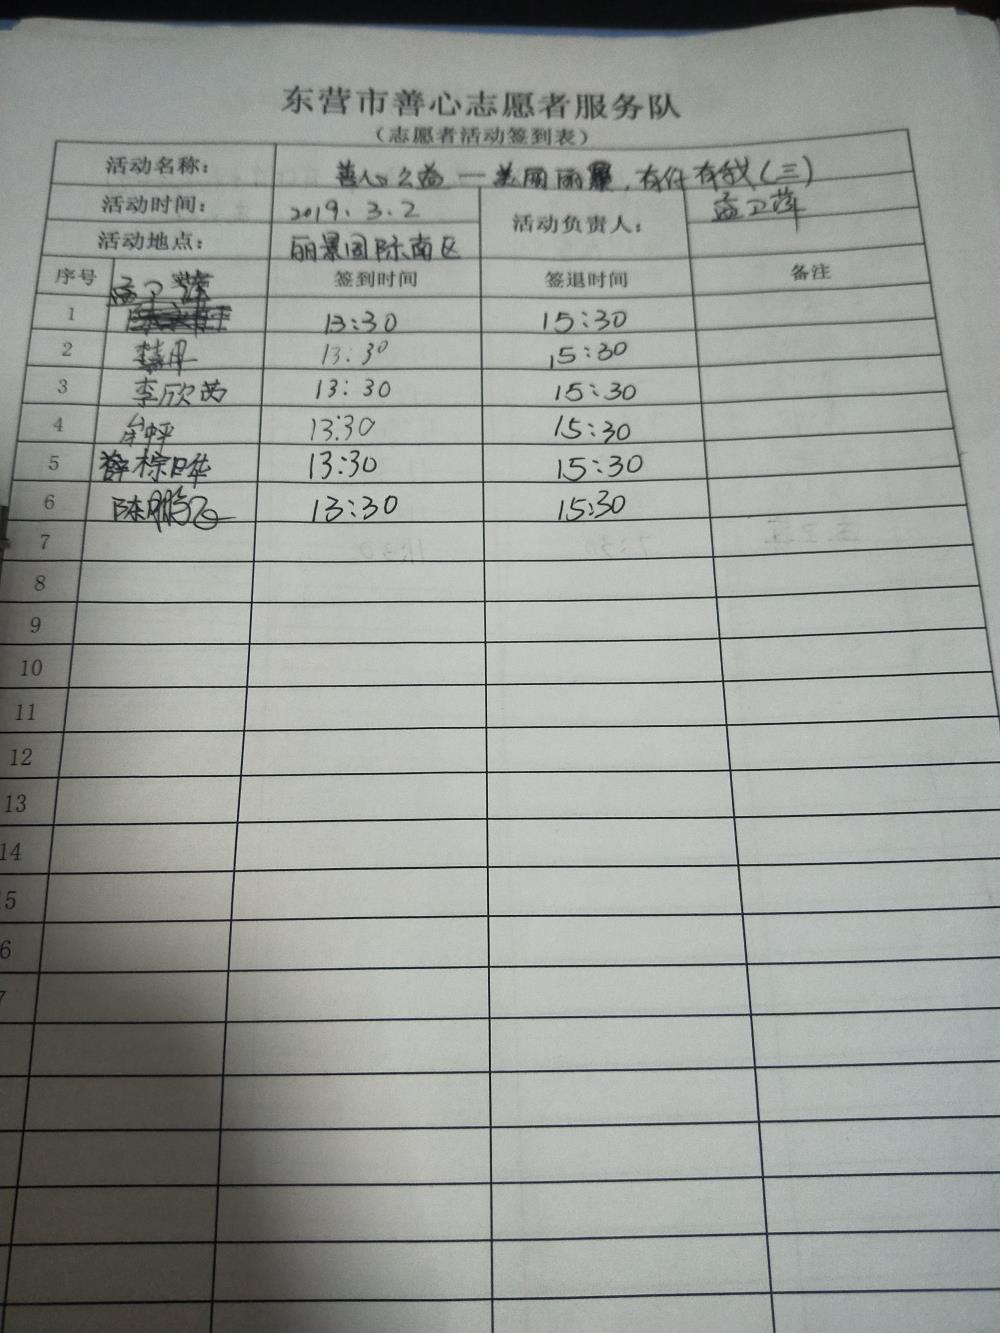 东营市善心志愿者服务队
（志愿者活动签到表）
活动名称： 善心公益一美丽丽景，有你有我（三）
活动时间： 2019.3.2 活动负责人： 孟卫萍
活动地点： 丽景国际南区
序号 孟卫萍 签到时间 签退时间 备注
1 13:30 15:30
2 13:30 15:30
3 李欣茵 13:30 15:30
4 13:30 15:30
5 薛棕晔 13:30 15:30
6 陈鹏飞 13:30 15:30
7
8
9
10
11
12
13
14
5
6
7